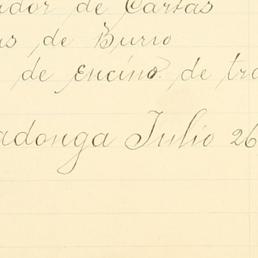 ador de Cartas
as de Burro
de encino de tra
adonga Julio 26